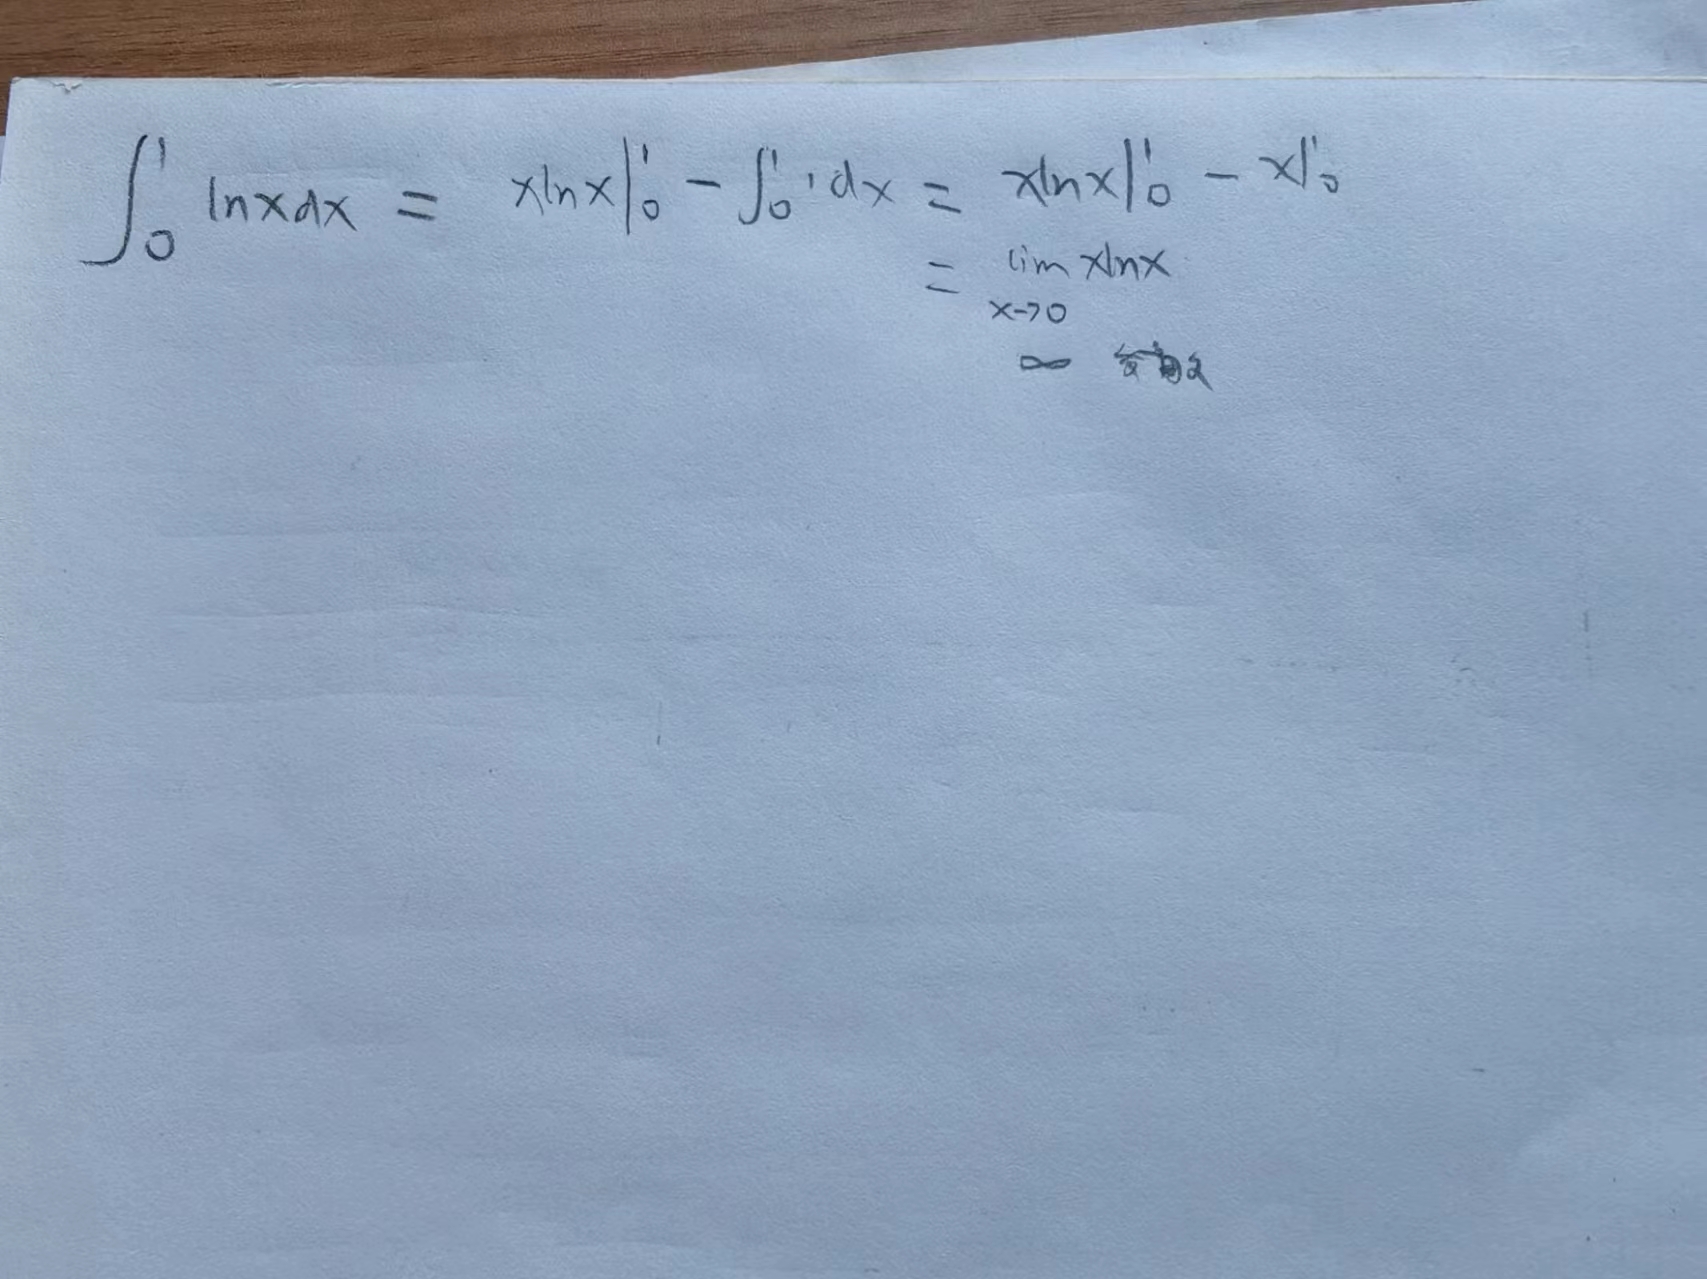 ∫₀¹ lnxdx = xlnx|₀¹ - ∫₀¹ 1dx = xlnx|₀¹ - x|₀¹
= lim xlnx
x→0
∞